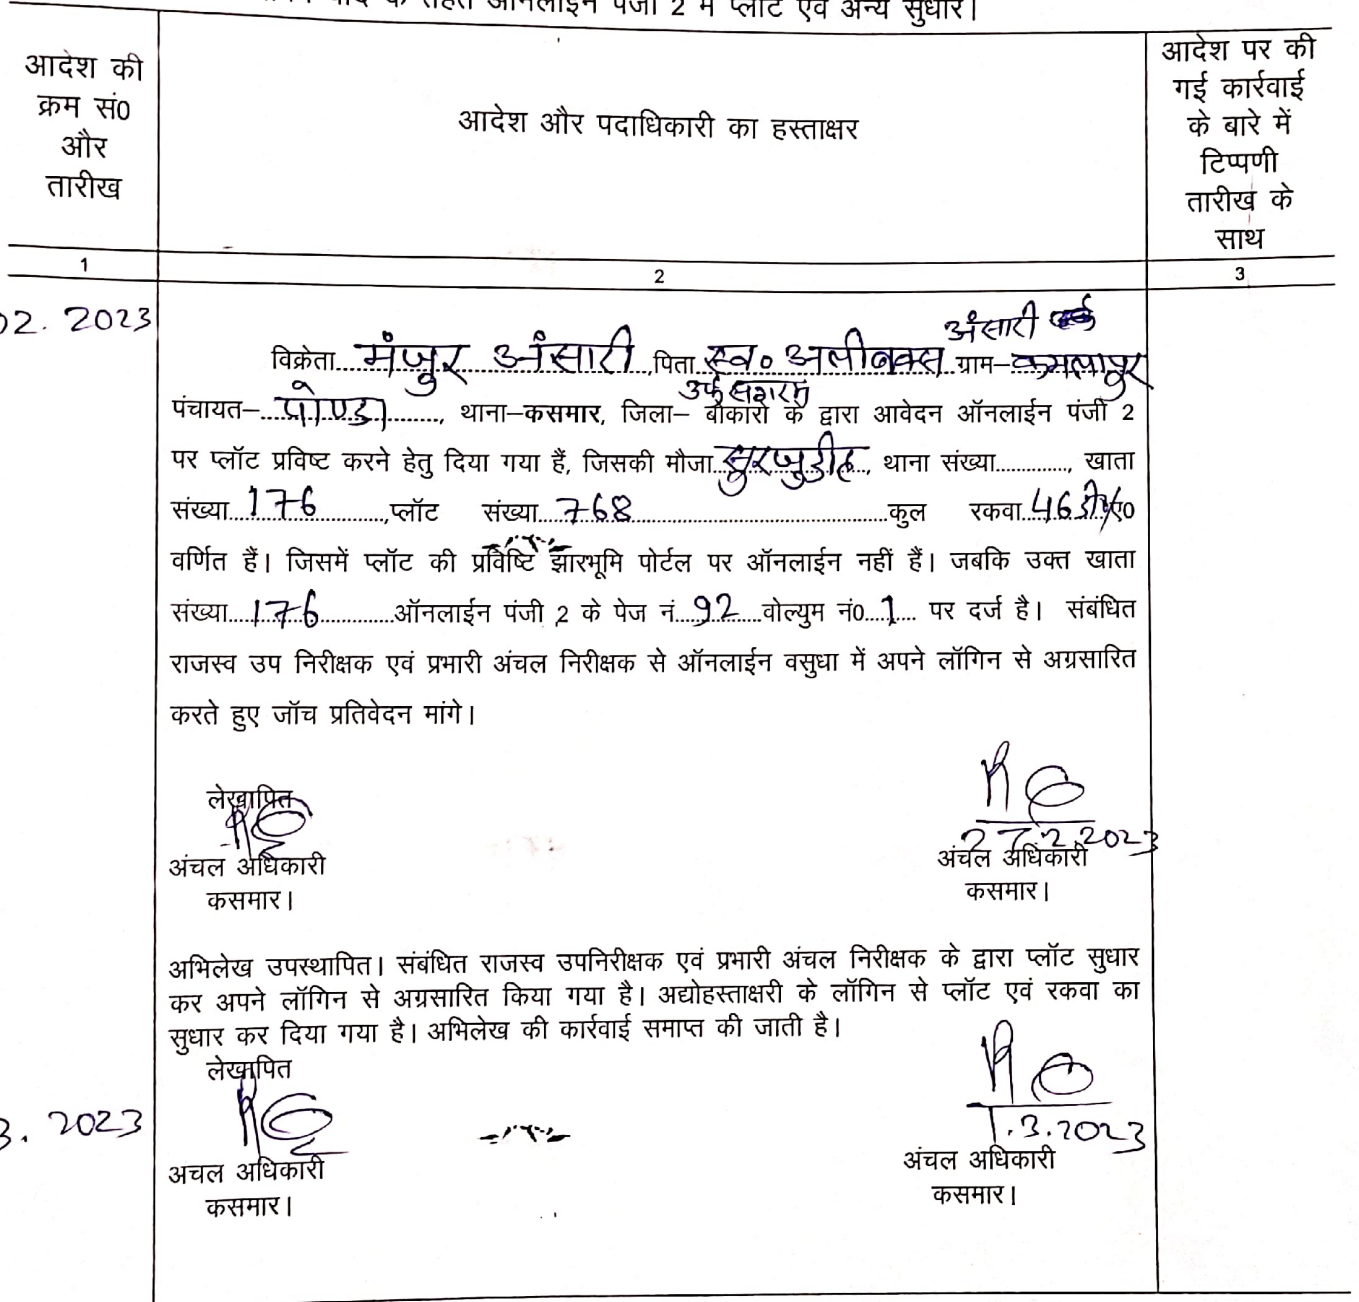 के तहत ऑनलाईन पंजी 2 में प्लॉट एवं अन्य सुधार।
आदेश की
क्रम सं0
और
तारीख
आदेश और पदाधिकारी का हस्ताक्षर
आदेश पर की
गई कार्रवाई
के बारे में
टिप्पणी
तारीख के
साथ
1 2 3
02. 2023
अंसारी
विक्रेता मंजुर अंसारी पिता स्व० अलीबक्स ग्राम– कमलापुर
उर्फ
पंचायत– पोण्डा, थाना–कसमार, जिला– बोकारो के द्वारा आवेदन ऑनलाईन पंजी 2
पर प्लॉट प्रविष्ट करने हेतु दिया गया हैं, जिसकी मौजा सुरजुडीह, थाना संख्या............., खाता
संख्या 176, प्लॉट संख्या 768 कुल रकवा 46 डी०
वर्णित हैं। जिसमें प्लॉट की प्रविष्टि झारभूमि पोर्टल पर ऑनलाईन नहीं हैं। जबकि उक्त खाता
संख्या 176 ऑनलाईन पंजी 2 के पेज नं 92 वोल्युम नं0 1 पर दर्ज है। संबंधित
राजस्व उप निरीक्षक एवं प्रभारी अंचल निरीक्षक से ऑनलाईन वसुधा में अपने लॉगिन से अग्रसारित
करते हुए जॉच प्रतिवेदन मांगे।
लेखापित
27.2.2023
अंचल अधिकारी अंचल अधिकारी
कसमार। कसमार।
अभिलेख उपस्थापित। संबंधित राजस्व उपनिरीक्षक एवं प्रभारी अंचल निरीक्षक के द्वारा प्लॉट सुधार
कर अपने लॉगिन से अग्रसारित किया गया है। अद्योहस्ताक्षरी के लॉगिन से प्लॉट एवं रकवा का
सुधार कर दिया गया है। अभिलेख की कार्रवाई समाप्त की जाती है।
लेखापित
3. 2023 1.3.2023
अचल अधिकारी अंचल अधिकारी
कसमार। कसमार।